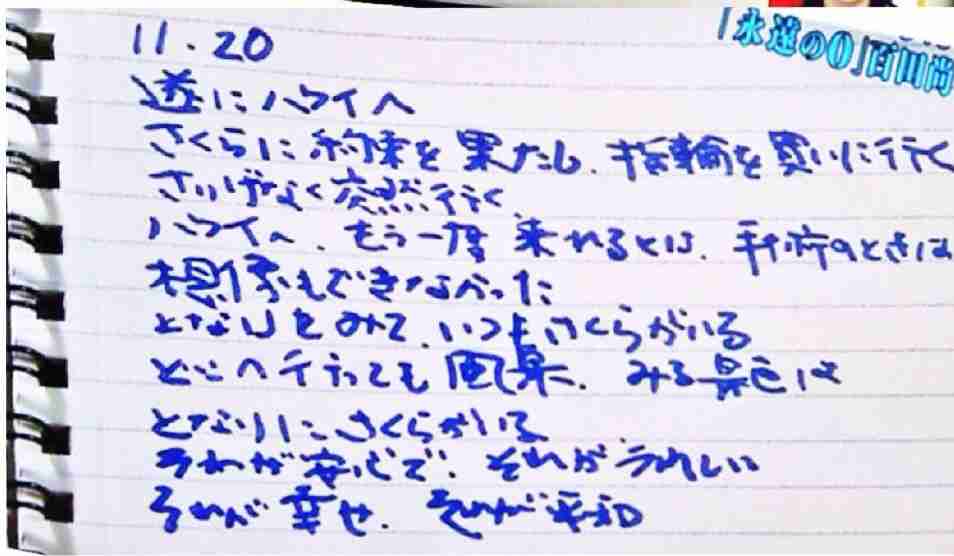 「永遠の0」百田尚
11.20
遂にハワイへ
さくらに約束を果たし、指輪を買いに行く
さりげなく突然行く
ハワイへ、もう一度来れるとは、手術のときは
想像もできなかった
となりをみて、いつもさくらがいる
どこへ行っても風景、みる景色は
となりにさくらがいる
それが安心で、それがうれしい
それが幸せ、それが平和